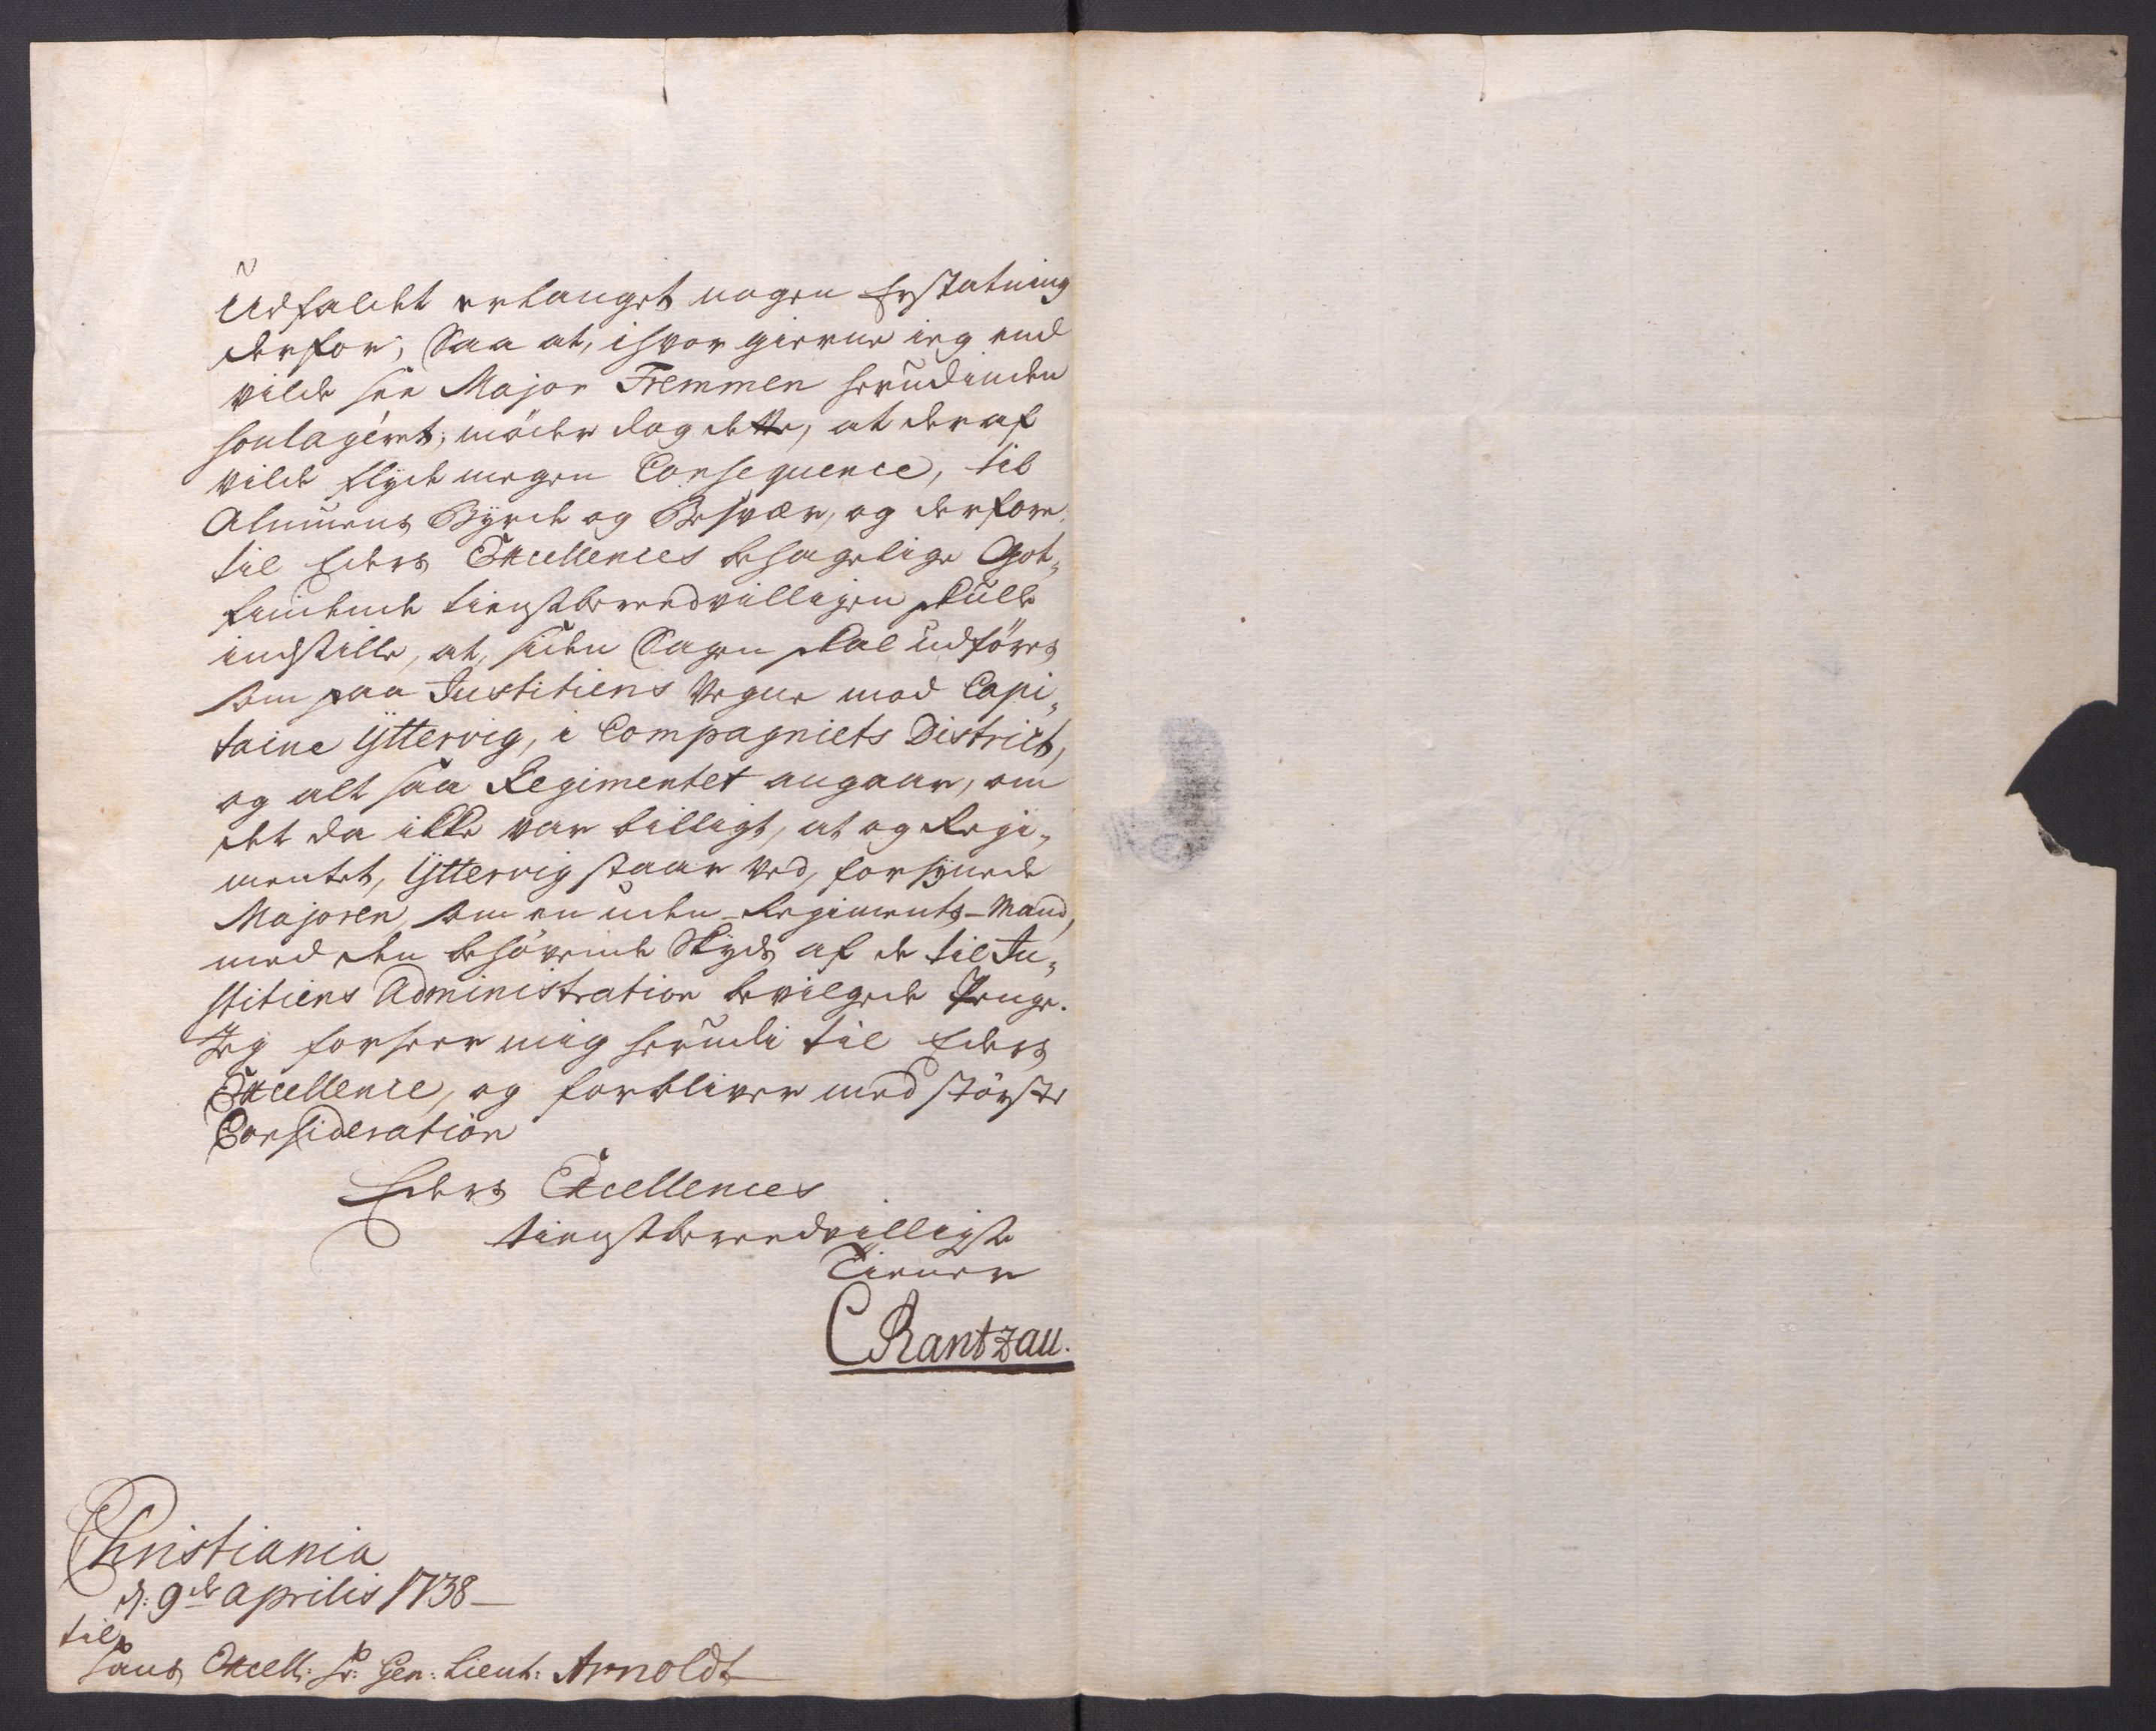 Udfaldet erlanget nogen Erstatning
derfor, Saa at, ihvor gierne ieg end
vilde see Major Fremmen herudinden
soulageret; møder dog dette, at deraf
vilde flyde megen Consequence, til
Almuens Byrde og Besvær, og derfore
til Eders Excellences behagelige Got„
findende tienstbereedvilligen skulle
indstille, at, siden Sagen skal udføres
som paa Justitiens Vegne mod Capi„
taine Yttervig, i Compagniets District,
og alt saa Regimentet angaar, om
det da ikke var billigt, at og Regi„
mentet, Yttervig staar ved, forsynede
Majoren, som en uden-Regiments-Mand,
med den behøvende Skyds af de til Ju„
stitiens Administration bevilgede Penge.
Jeg forseer mig herudi til Eders
Excellence, og forbliver med største
Consideration
Eders Excellences
tienstbereedvilligste
Tiener
CRantzau.
Christiania
d: 9de Aprilis 1738
til
Hans Excell: Hr: Gen: Lieut: Arnoldt